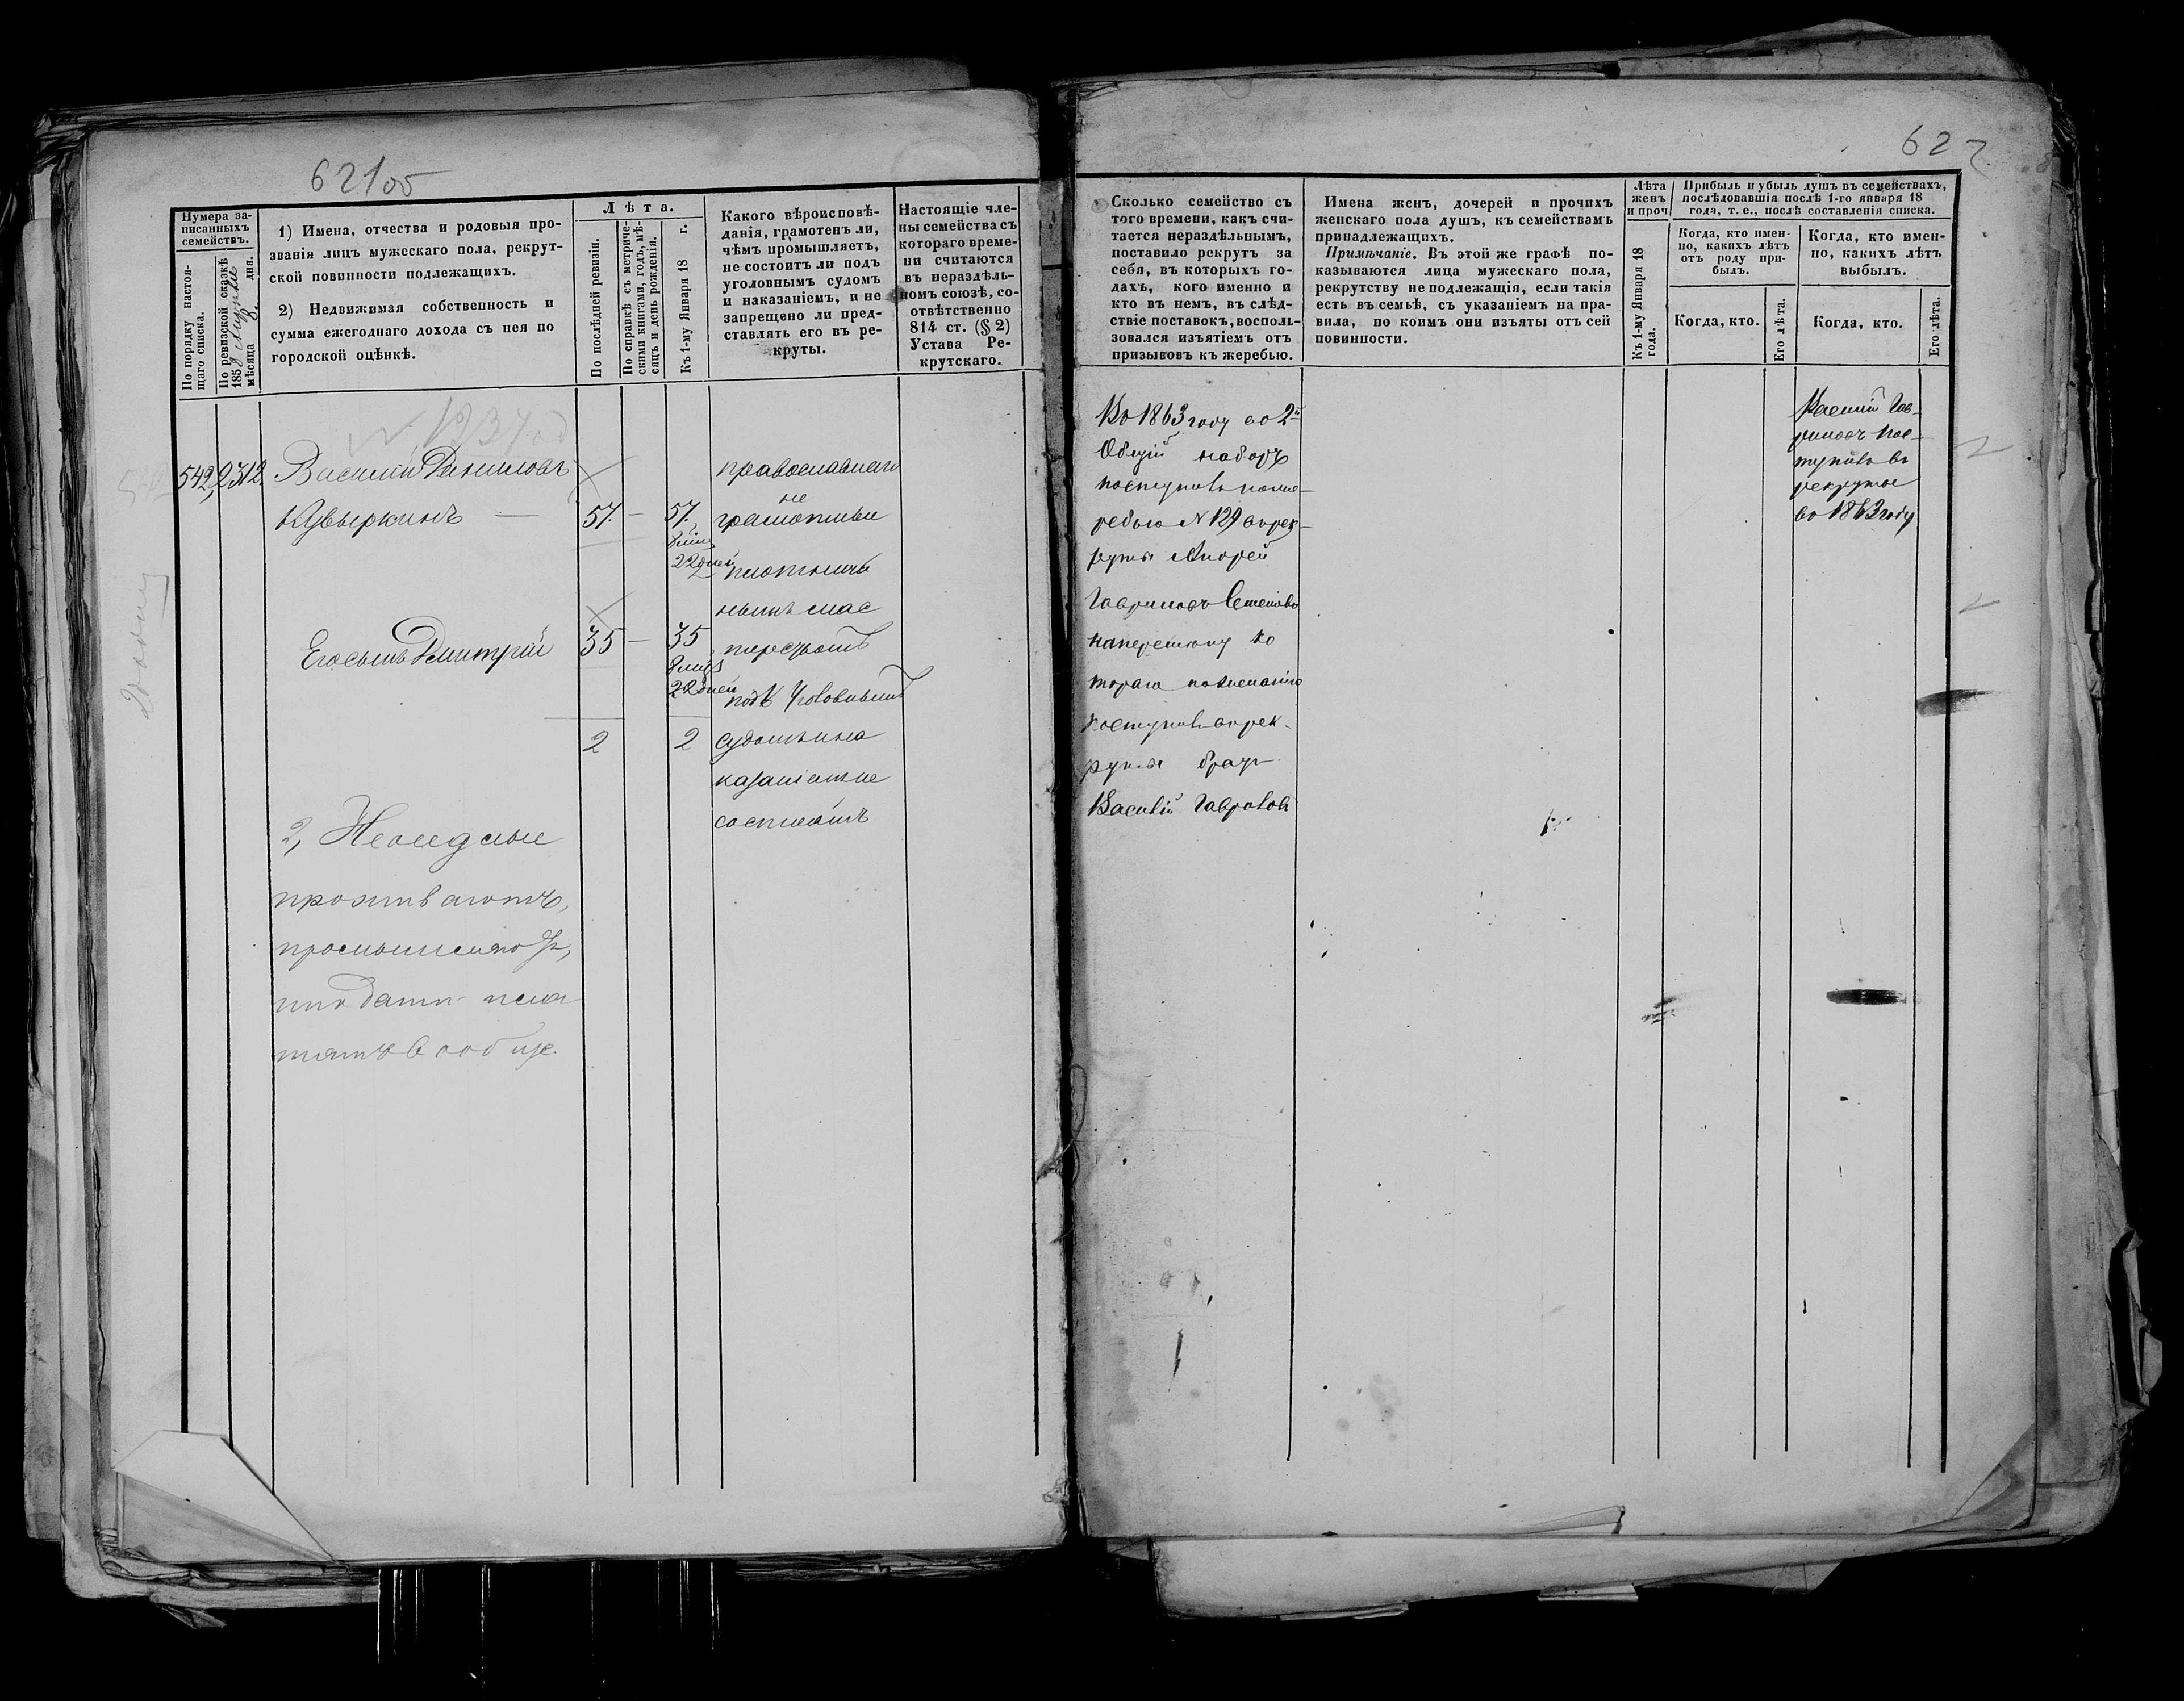 621об
Нумера за-
писанныхъ
семействъ.
По порядку настоя-
щаго списка.
По ревизской сказкѣ
185
мѣсяца дня.
1) Имена, отчества и родовыя про-
званія лицъ мужескаго пола, рекрут-
ской повинности подлежащихъ.
2) Недвижимая собственность и
сумма ежегоднаго дохода съ нея по
городской оцѣнкѣ.
Лѣта.
По послѣдней ревизіи.
По справкѣ съ метриче-
скими книгами, годъ, мѣ-
сяцъ и день рожденія.
Къ 1-му Января 18 г.
Какого вѣроисповѣ-
данія, грамотенъ ли,
чѣмъ промышляетъ,
не состоитъ ли подъ
уголовнымъ судомъ
и наказаніемъ, и не
запрещено ли пред-
ставлять его въ ре-
круты.
Настоящіе чле-
ны семейства съ
котораго време-
ни считаются
въ нераздѣль-
номъ союзѣ, со-
отвѣтственно
814 ст. (§ 2)
Устава Ре-
крутскаго.
542, 2312.
Василій Даниловъ
Кувыркинъ —
57. — 57.
22 дней
Егосынъ Дмитрій
35 — 35
8 мѣс
22 дней
2 2
православнаго
не
грамотные
подъ Уголовнымъ
судомъ и на
казаніемъ не
состоятъ
2,
проживаютъ,
622
Сколько семейство съ
того времени, какъ счи-
тается нераздѣльнымъ,
поставило рекрутъ за
себя, въ которыхъ го-
дахъ, кого именно и
кто въ немъ, въ слѣд-
ствіе поставокъ, восполь-
зовался изъятіемъ отъ
призывовъ къ жеребью.
Имена женъ, дочерей и прочихъ
женскаго пола душъ, къ семействамъ
принадлежащихъ.
Примѣчаніе. Въ этой же графѣ по-
казываются лица мужескаго пола,
рекрутству не подлежащія, если такія
есть въ семьѣ, съ указаніемъ на пра-
вила, по коимъ они изъяты отъ сей
повинности.
Лѣта
женъ
и проч
Къ 1-му Января 18
года.
Прибыль и убыль душъ въ семействахъ,
послѣдовавшія послѣ 1-го января 18
года, т. е., послѣ составленія списка.
Когда, кто имен-
но, какихъ лѣтъ
отъ роду при-
былъ.
Когда, кто имен-
но, какихъ лѣтъ
выбылъ.
Когда, кто.
Его лѣта.
Когда, кто.
Его лѣта.
Во 1863 году во 2й
Общій наборъ
поступилъ пожо-
ребью N 129 в рек-
руты Андрей
Гавриловъ Семеновъ
ко
тораго пожеланію
поступилъ в рек-
руты братъ
Василій Гавриловъ
Василій Гав-
риловъ пос-
тупилъ въ
рекруты
во 1863 году